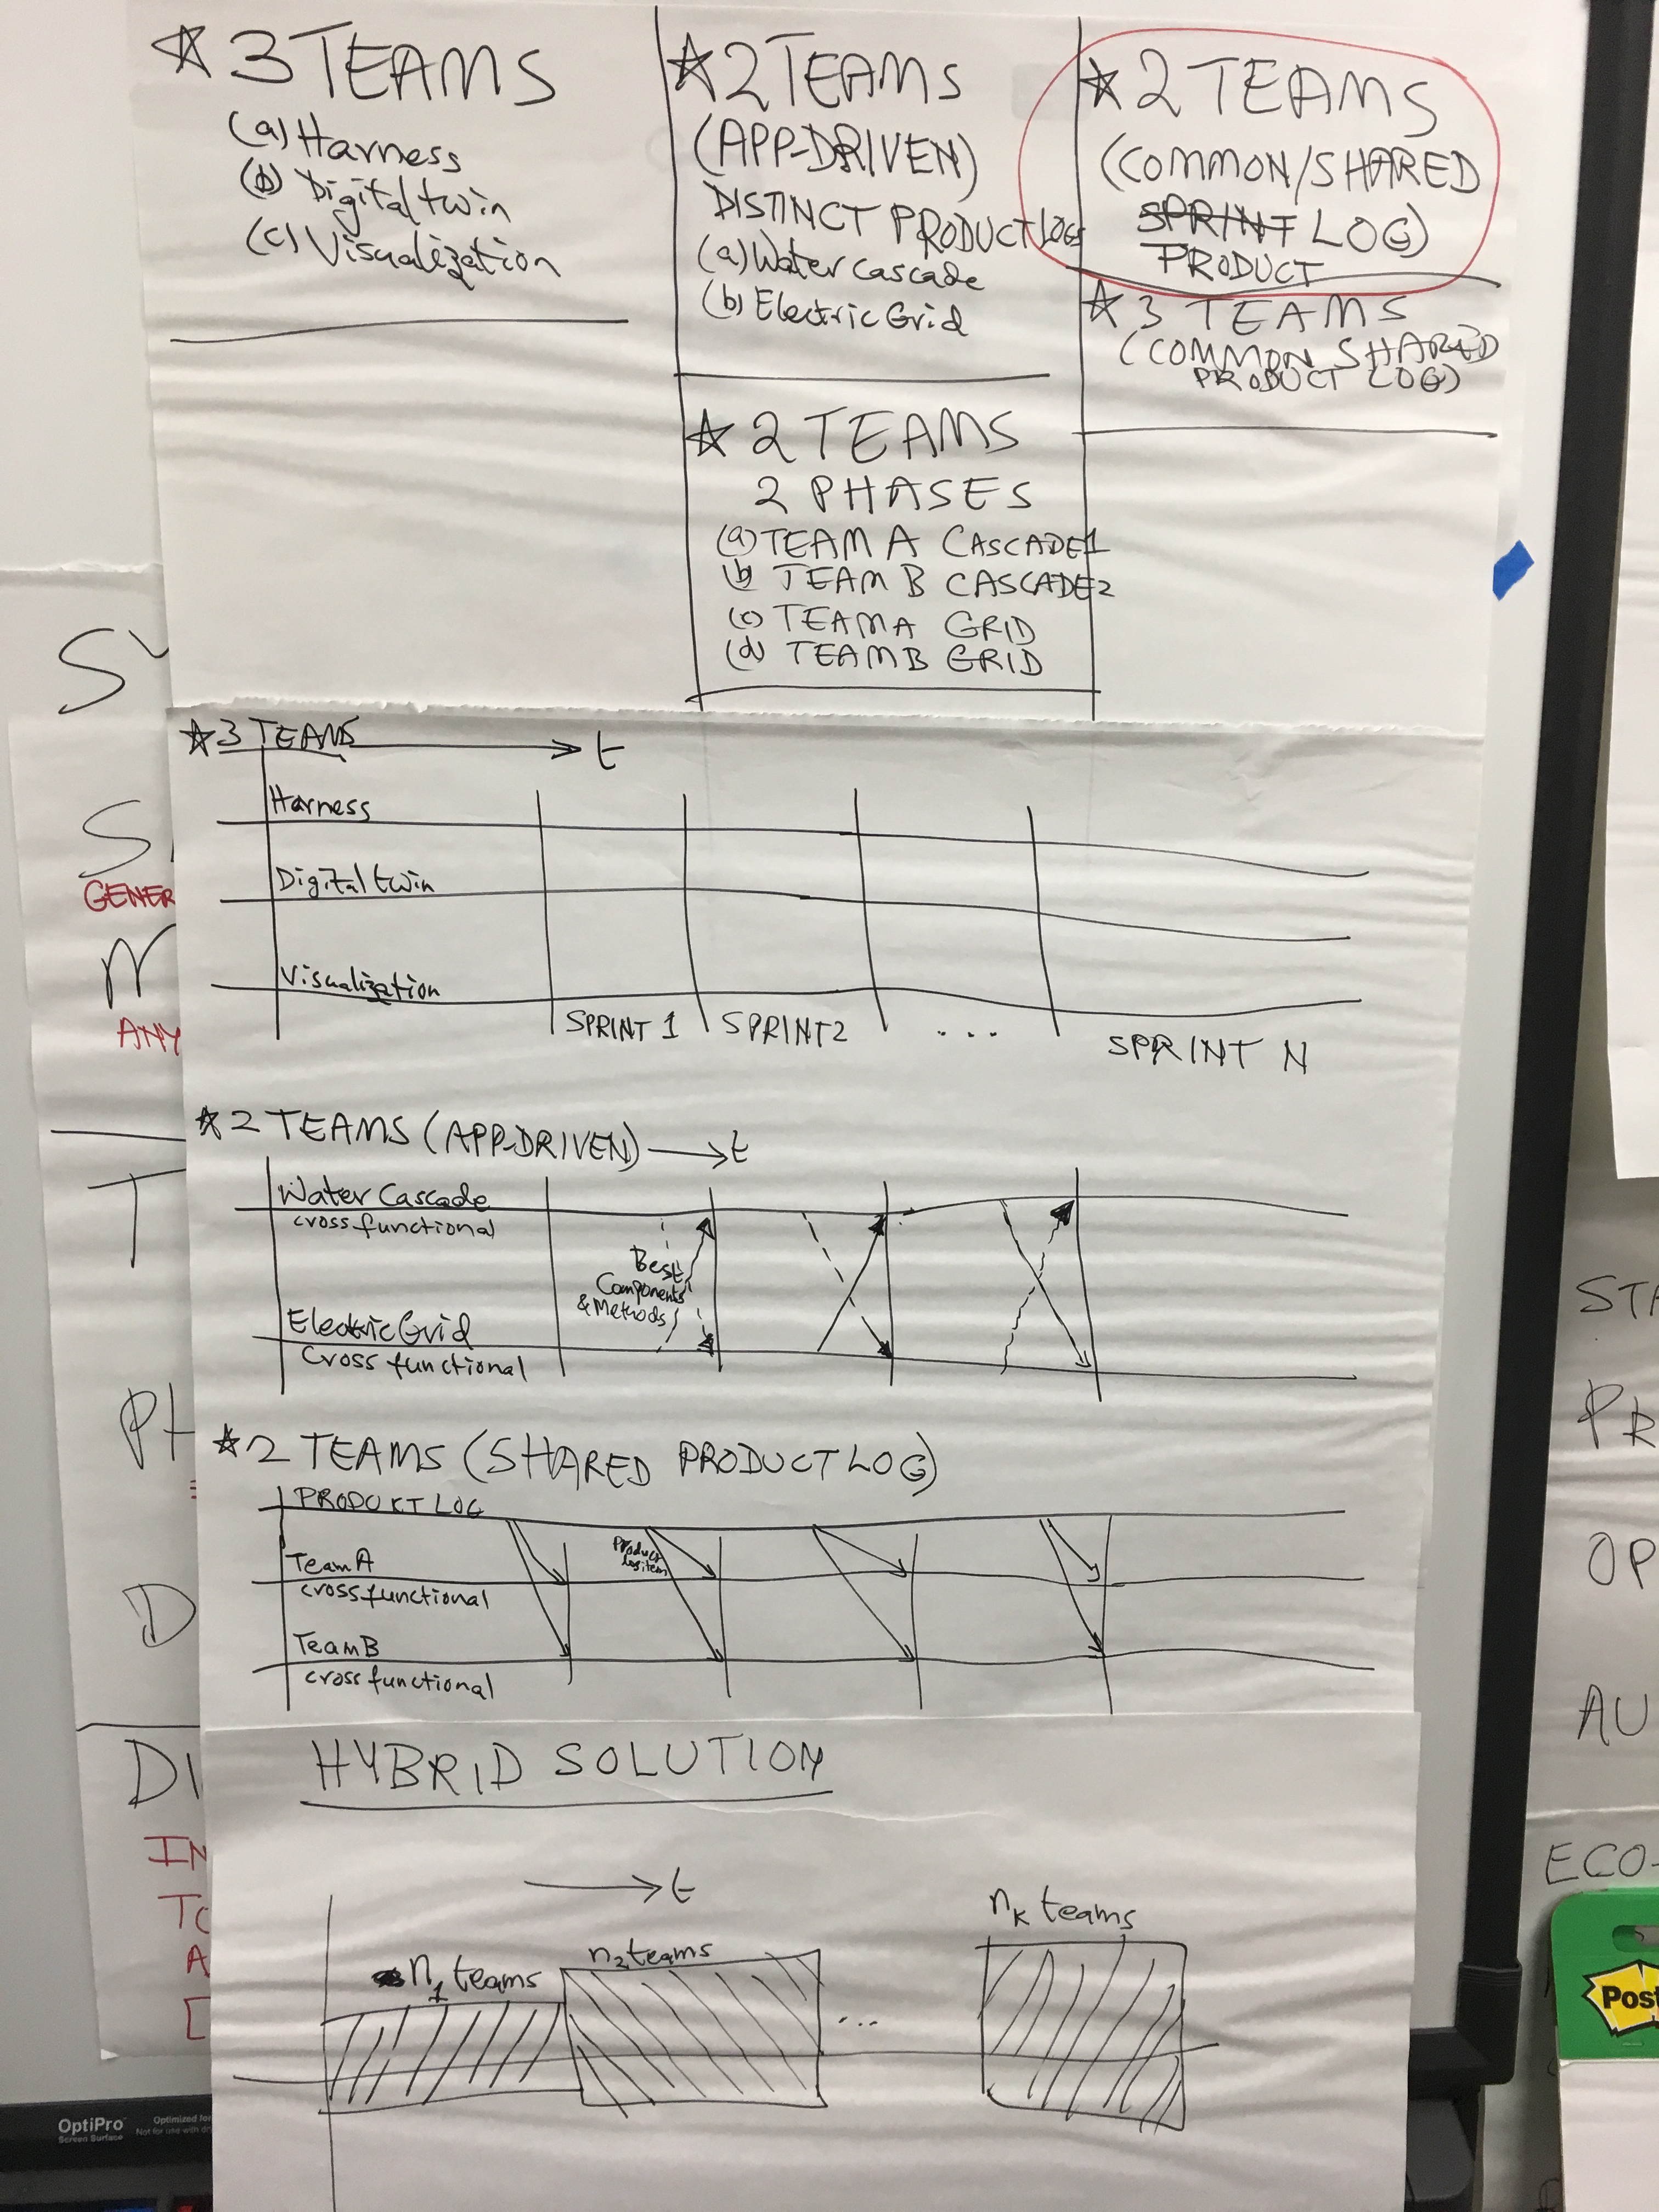 ☆ 3 TEAMS
(a) Harness
(b) Digital twin
(c) Visualization
☆ 2 TEAMS
(APP-DRIVEN)
DISTINCT PRODUCT LOGS
(a) Water Cascade
(b) Electric Grid
☆ 2 TEAMS
2 PHASES
(a) TEAM A CASCADE1
(b) TEAM B CASCADE2
(c) TEAM A GRID
(d) TEAM B GRID
☆ 2 TEAMS
(COMMON/SHARED
SPRINT LOG)
PRODUCT
☆ 3 TEAMS
(COMMON SHARED
PRODUCT LOG)
☆ 3 TEAMS → t
Harness
Digital twin
Visualization
SPRINT 1 SPRINT 2 ... SPRINT N
☆ 2 TEAMS (APP-DRIVEN) → t
Water Cascade
cross functional
Best
Components
& Methods
Electric Grid
Cross functional
☆ 2 TEAMS (SHARED PRODUCT LOG)
PRODUKT LOG
Product
log item
Team A
cross functional
Team B
cross functional
HYBRID SOLUTION
→ t
n1 teams n2 teams ... nK teams
GENER
ANY
T
PH
D
DI
IN
TO
A
STA
PR
OP
AU
ECO-
Post
OptiPro
Screen Surface
Optimized for
Not for use with dr